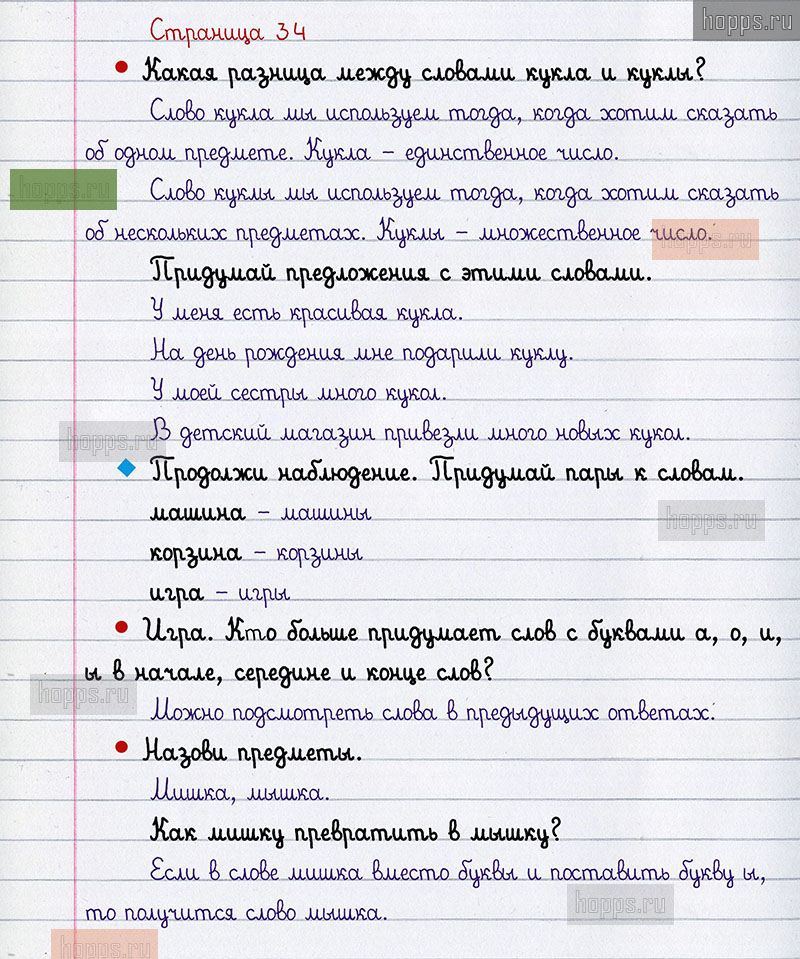 hopps.ru
Страница 34
Какая разница между словами кукла и куклы?
Слово кукла мы используем тогда, когда хотим сказать
об одном предмете. Кукла – единственное число.
hopps.ru
Слово куклы мы используем тогда, когда хотим сказать
об нескольких предметах. Куклы – множественное число.
hopps.ru
Придумай предложения с этими словами.
У меня есть красивая кукла.
На день рождения мне подарили куклу.
У моей сестры много кукол.
В детский магазин привезли много новых кукол.
hopps.ru
Продолжи наблюдение. Придумай пары к словам.
машина – машины
hopps.ru
корзина – корзины
игра – игры
Игра. Кто больше придумает слов с буквами а, о, и,
ы в начале, середине и конце слов?
hopps.ru
Можно подсмотреть слова в предыдущих ответах.
Назови предметы.
Мишка, мышка.
Как мишку превратить в мышку?
Если в слове мишка вместо буквы и поставить букву ы,
hopps.ru
то получится слово мышка.
hopps.ru